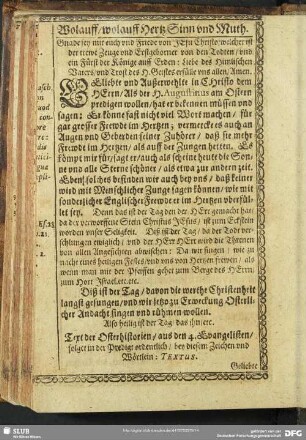 Wolauff, wolauff Hertz Sinn und Muth.
Gnade sey mit euch und Friede von Jesu Christo, welcher ist
der trewe Zeuge und Erstgeborner von den Todten, und
ein Fürst der Könige auff Erden: Liebe des Himlischen
Vaters, und Trost des H. Geistes erfülle uns allen, Amen.
Geliebte und Außerwehlte in Christo dem
HErrn. Als der H. Augustinus am Ostern
predigen wollen, hat er bekennen müssen und
sagen: Er könne fast nicht viel Wort machen, für
gar grosser Frewde im Hertzen; vermercke es auch an
Augen und Geberden seiner Zuhörer, daß sie mehr
Frewde im Hertzen, als auff der Zungen hetten. Es
kömpt mir für, sagt er, auch als scheine heute die Son-
ne und alle Sterne schöner, als etwa zur andern zeit.
Eben solches befinden wir auch bey uns, daß keiner
wird mit Menschlicher Zunge sagen können, wie mit
sonderlicher Englischer Frewde er im Hertzen oberfül-
let sey. Denn das ist der Tag den der HErr gemacht hat,
da der verworffene Stein Christus Jesus, ist zum Eckstein
worden unser Seligkeit. Diß ist der Tag, da der Todt ver-
schlungen ewiglich, und der HErr HErr wird die Threnen
von allen Angesichten abwischen: Da wir singen, wie zu
nachts eines heiligen Festes, und uns von Hertzen frewen, als
wenn man mit der Pfeiffen gehet zum Berge des HErrn,
zum Hort Israel, etc. etc.
Diß ist der Tag, davon die werthe Christenheit
langst gesungen, und wir jetzo zu Erweckung Osterli-
cher Andacht singen und rühmen wollen.
Also heilig ist der Tag, das ihn, etc.
Text der Osterhistorien, aus den 4. Evangelisten,
folget in der Predigt ordentlich, bey diesem Zeichen und
Wörtlein: TEXTUS.
Geliebte
SLUB
DFG